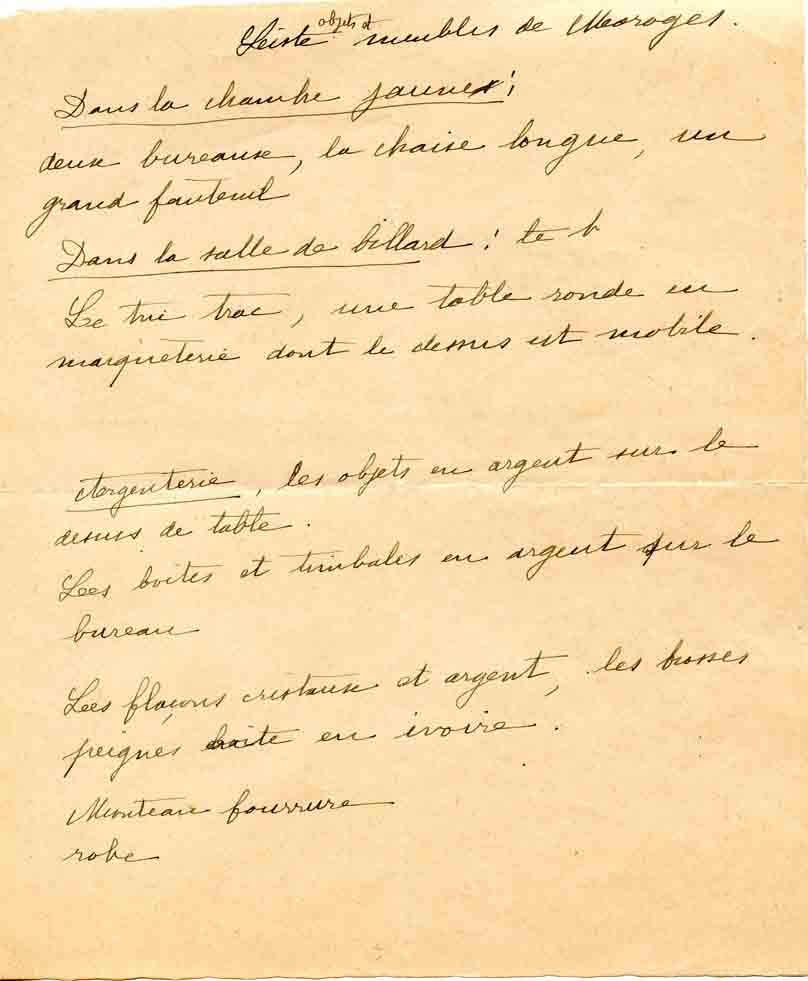 Liste objets et meubles de Moroges.
Dans la chambre jaune :
deux bureaux, la chaise longue, un
grand fauteuil
Dans la salle de billard : te b
Le tric trac, une table ronde en
marqueterie dont le dessus est mobile.
Argenterie, les objets en argent sur le
dessus de table.
Les boites et timbales en argent sur le
bureau
Les flaçons cristaux et argent, les brosses
peignes boite en ivoire.
Manteau fourrure
robe